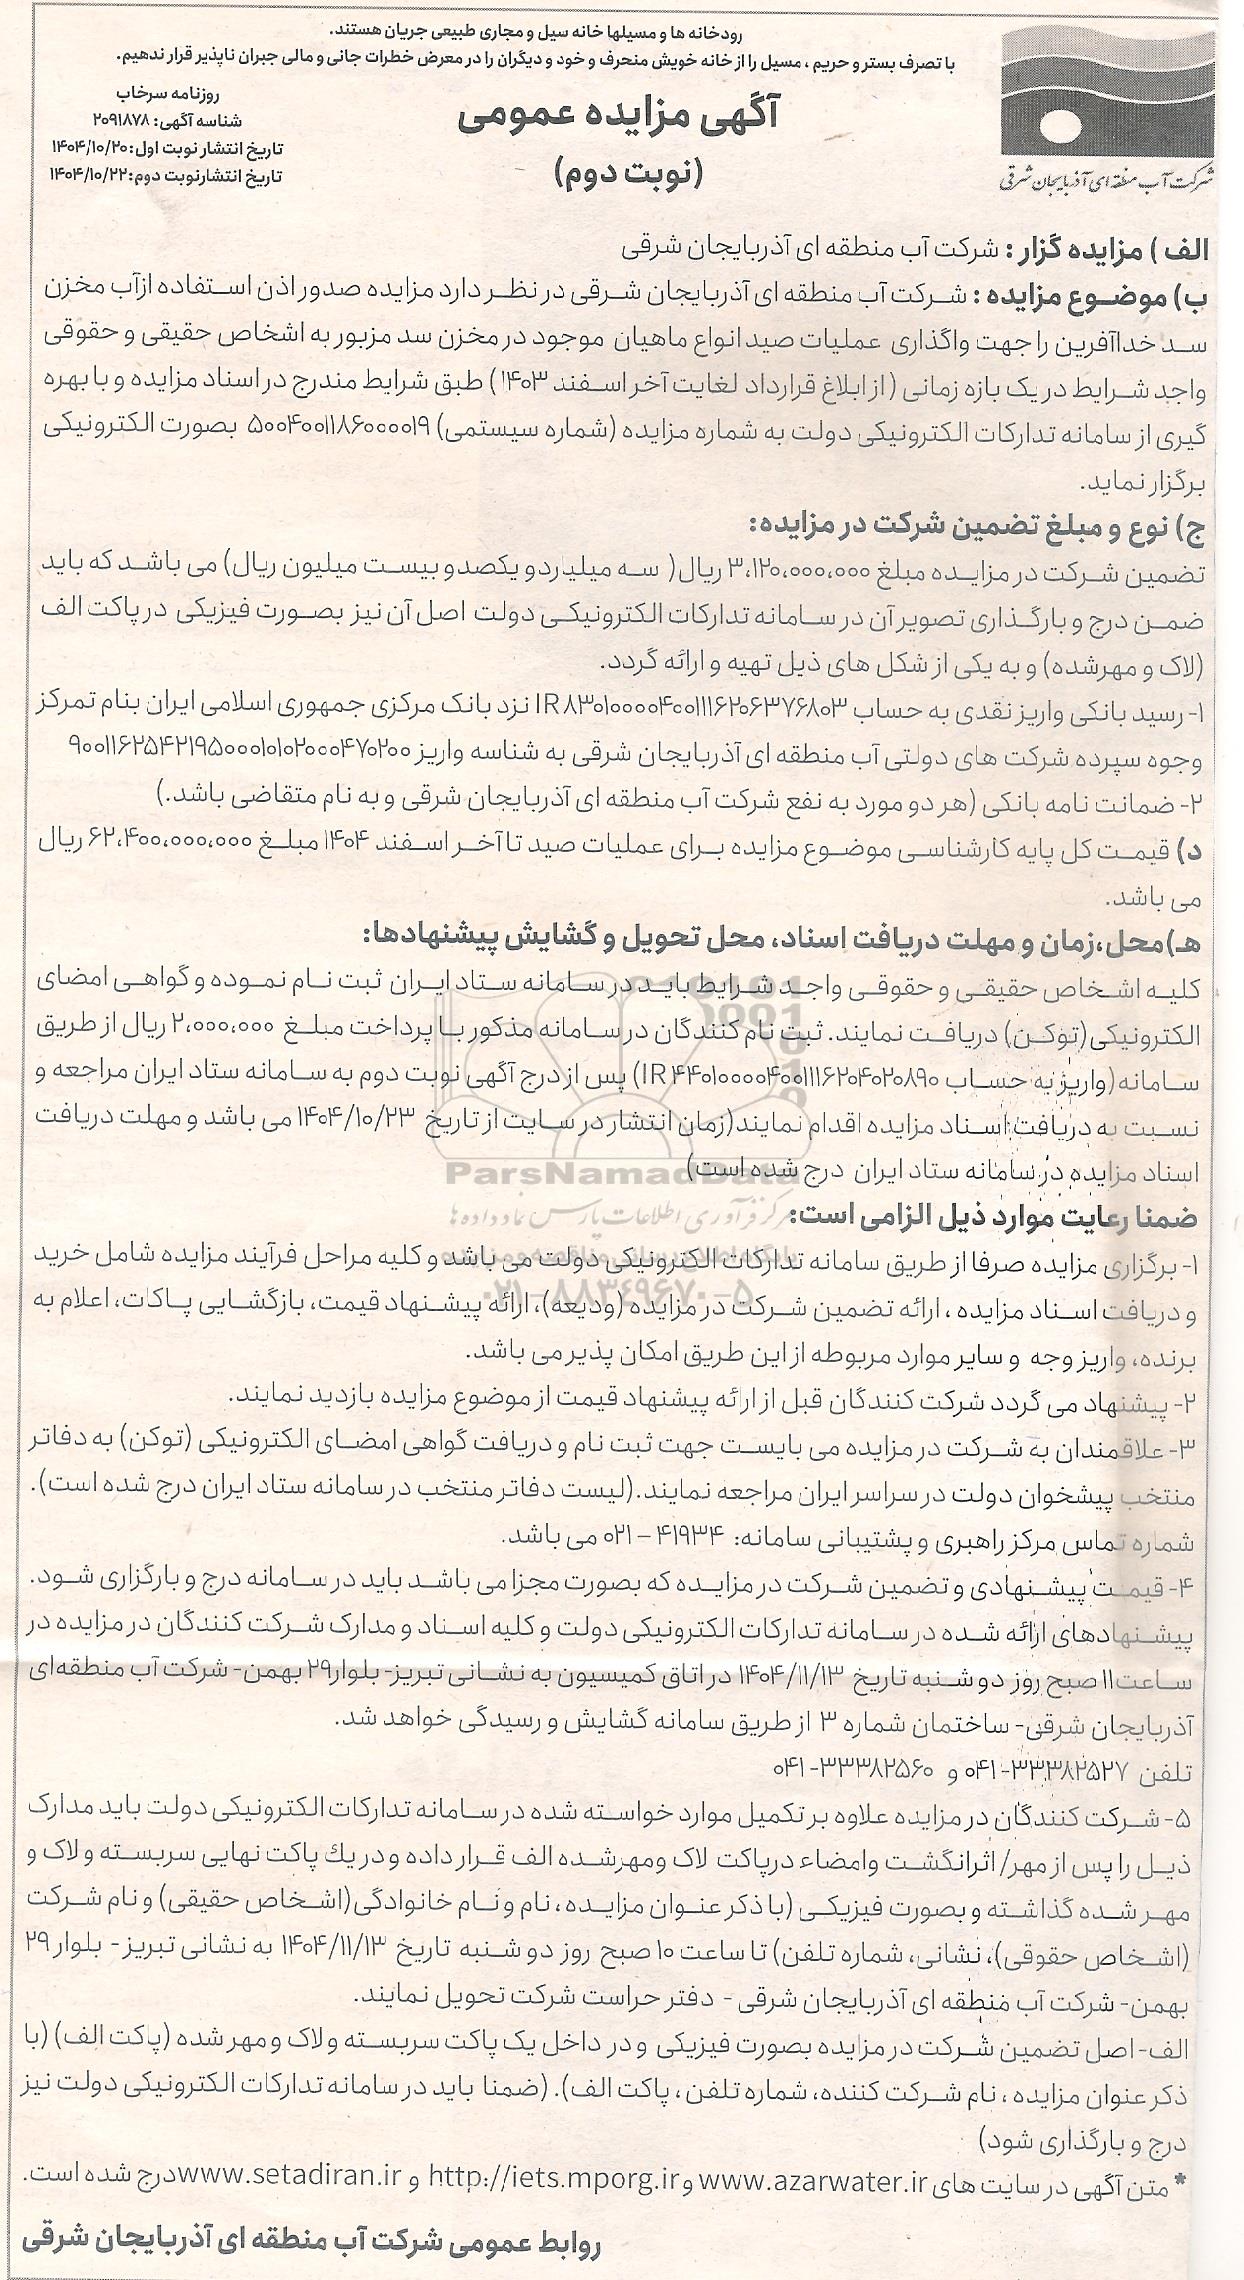 رودخانه ها و مسیلها خانه سیل و مجاری طبیعی جریان هستند.
با تصرف بستر و حریم ، مسیل را از خانه خویش منحرف و خود و دیگران را در معرض خطرات جانی و مالی جبران ناپذیر قرار ندهیم.
شرکت آب منطقه ای آذربایجان شرقی
آگهی مزایده عمومی
(نوبت دوم)
روزنامه سرخاب
شناسه آگهی: ۲۰۹۱۸۷۸
تاریخ انتشار نوبت اول:۱۴۰۴/۱۰/۲۰
تاریخ انتشارنوبت دوم:۱۴۰۴/۱۰/۲۲
الف ) مزایده گزار : شرکت آب منطقه ای آذربایجان شرقی
ب) موضوع مزایده : شرکت آب منطقه ای آذربایجان شرقی در نظر دارد مزایده صدور اذن استفاده ازآب مخزن
سد خداآفرین را جهت واگذاری عملیات صید انواع ماهیان موجود در مخزن سد مزبور به اشخاص حقیقی و حقوقی
واجد شرایط در یک بازه زمانی ( از ابلاغ قرارداد لغایت آخر اسفند ۱۴۰۳ ) طبق شرایط مندرج در اسناد مزایده و با بهره
گیری از سامانه تدارکات الکترونیکی دولت به شماره مزایده (شماره سیستمی) ۵۰۰۴۰۰۱۱۸۶۰۰۰۰۱۹ بصورت الکترونیکی
برگزار نماید.
ج) نوع و مبلغ تضمین شرکت در مزایده:
تضمین شرکت در مزایده مبلغ ۳،۱۲۰،۰۰۰،۰۰۰ ریال( سه میلیاردو یکصدو بیست میلیون ریال) می باشد که باید
ضمن درج و بارگذاری تصویر آن در سامانه تدارکات الکترونیکی دولت اصل آن نیز بصورت فیزیکی در پاکت الف
(لاک و مهرشده) و به یکی از شکل های ذیل تهیه و ارائه گردد.
۱- رسید بانکی واریز نقدی به حساب IR۸۳۰۱۰۰۰۰۴۰۰۱۱۱۶۲۰۶۳۷۶۸۰۳ نزد بانک مرکزی جمهوری اسلامی ایران بنام تمرکز
وجوه سپرده شرکت های دولتی آب منطقه ای آذربایجان شرقی به شناسه واریز ۹۰۰۱۱۶۲۵۴۲۱۹۵۰۰۰۱۰۱۰۲۰۰۰۴۷۰۲۰۰
۲- ضمانت نامه بانکی (هر دو مورد به نفع شرکت آب منطقه ای آذربایجان شرقی و به نام متقاضی باشد.)
د) قیمت کل پایه کارشناسی موضوع مزایده برای عملیات صید تا آخر اسفند ۱۴۰۴ مبلغ ۶۲،۴۰۰،۰۰۰،۰۰۰ ریال
می باشد.
هـ)محل،زمان و مهلت دریافت اسناد، محل تحویل و گشایش پیشنهادها:
کلیه اشخاص حقیقی و حقوقی واجد شرایط باید در سامانه ستاد ایران ثبت نام نموده و گواهی امضای
الکترونیکی(توکن) دریافت نمایند. ثبت نام کنندگان در سامانه مذکور با پرداخت مبلغ ۲،۰۰۰،۰۰۰ ریال از طریق
سامانه (واریز به حساب IR۴۴۰۱۰۰۰۰۴۰۰۱۱۱۶۲۰۴۰۲۰۸۹۰) پس از درج آگهی نوبت دوم به سامانه ستاد ایران مراجعه و
نسبت به دریافت اسناد مزایده اقدام نمایند(زمان انتشار در سایت از تاریخ ۱۴۰۴/۱۰/۲۳ می باشد و مهلت دریافت
اسناد مزایده در سامانه ستاد ایران درج شده است)
ParsNamadData
مرکز فرآوری اطلاعات پارس نماد داده ها
ضمنا رعایت موارد ذیل الزامی است:
۱- برگزاری مزایده صرفا از طریق سامانه تدارکات الکترونیکی دولت می باشد و کلیه مراحل فرآیند مزایده شامل خرید
و دریافت اسناد مزایده ، ارائه تضمین شرکت در مزایده (ودیعه)، ارائه پیشنهاد قیمت، بازگشایی پاکات، اعلام به
۰۲۱-۸۸۳۴۹۶۷۰-۵
برنده، واریز وجه و سایر موارد مربوطه از این طریق امکان پذیر می باشد.
۲- پیشنهاد می گردد شرکت کنندگان قبل از ارائه پیشنهاد قیمت از موضوع مزایده بازدید نمایند.
۳- علاقمندان به شرکت در مزایده می بایست جهت ثبت نام و دریافت گواهی امضای الکترونیکی (توکن) به دفاتر
منتخب پیشخوان دولت در سراسر ایران مراجعه نمایند.(لیست دفاتر منتخب در سامانه ستاد ایران درج شده است).
شماره تماس مرکز راهبری و پشتیبانی سامانه: ۴۱۹۳۴ – ۰۲۱ می باشد.
۴- قیمت پیشنهادی و تضمین شرکت در مزایده که بصورت مجزا می باشد باید در سامانه درج و بارگزاری شود.
پیشنهادهای ارائه شده در سامانه تدارکات الکترونیکی دولت و کلیه اسناد و مدارک شرکت کنندگان در مزایده در
ساعت۱۱ صبح روز دوشنبه تاریخ ۱۴۰۴/۱۱/۱۳ در اتاق کمیسیون به نشانی تبریز- بلوار۲۹ بهمن- شرکت آب منطقه‌ای
آذربایجان شرقی- ساختمان شماره ۳ از طریق سامانه گشایش و رسیدگی خواهد شد.
تلفن ۳۳۳۸۲۵۲۷-۰۴۱ و ۳۳۳۸۲۵۶۰-۰۴۱
۵- شرکت کنندگان در مزایده علاوه بر تکمیل موارد خواسته شده در سامانه تدارکات الکترونیکی دولت باید مدارک
ذیل را پس از مهر/ اثرانگشت وامضاء درپاکت لاک ومهرشده الف قرار داده ودر یك پاکت نهایی سربسته و لاک و
مهر شده گذاشته و بصورت فیزیکی (با ذکر عنوان مزایده ، نام و نام خانوادگی(اشخاص حقیقی) و نام شرکت
(اشخاص حقوقی)، نشانی، شماره تلفن) تا ساعت ۱۰ صبح روز دو شنبه تاریخ ۱۴۰۴/۱۱/۱۳ به نشانی تبریز - بلوار ۲۹
بهمن- شرکت آب منطقه ای آذربایجان شرقی - دفتر حراست شرکت تحویل نمایند.
الف- اصل تضمین شرکت در مزایده بصورت فیزیکی و در داخل یک پاکت سربسته و لاک و مهر شده (پاکت الف) (با
ذکر عنوان مزایده ، نام شرکت کننده، شماره تلفن ، پاکت الف). (ضمنا باید در سامانه تدارکات الکترونیکی دولت نیز
درج و بارگذاری شود)
* متن آگهی در سایت های www.azarwater.ir و http://iets.mporg.ir و www.setadiran.ir درج شده است.
روابط عمومی شرکت آب منطقه ای آذربایجان شرقی